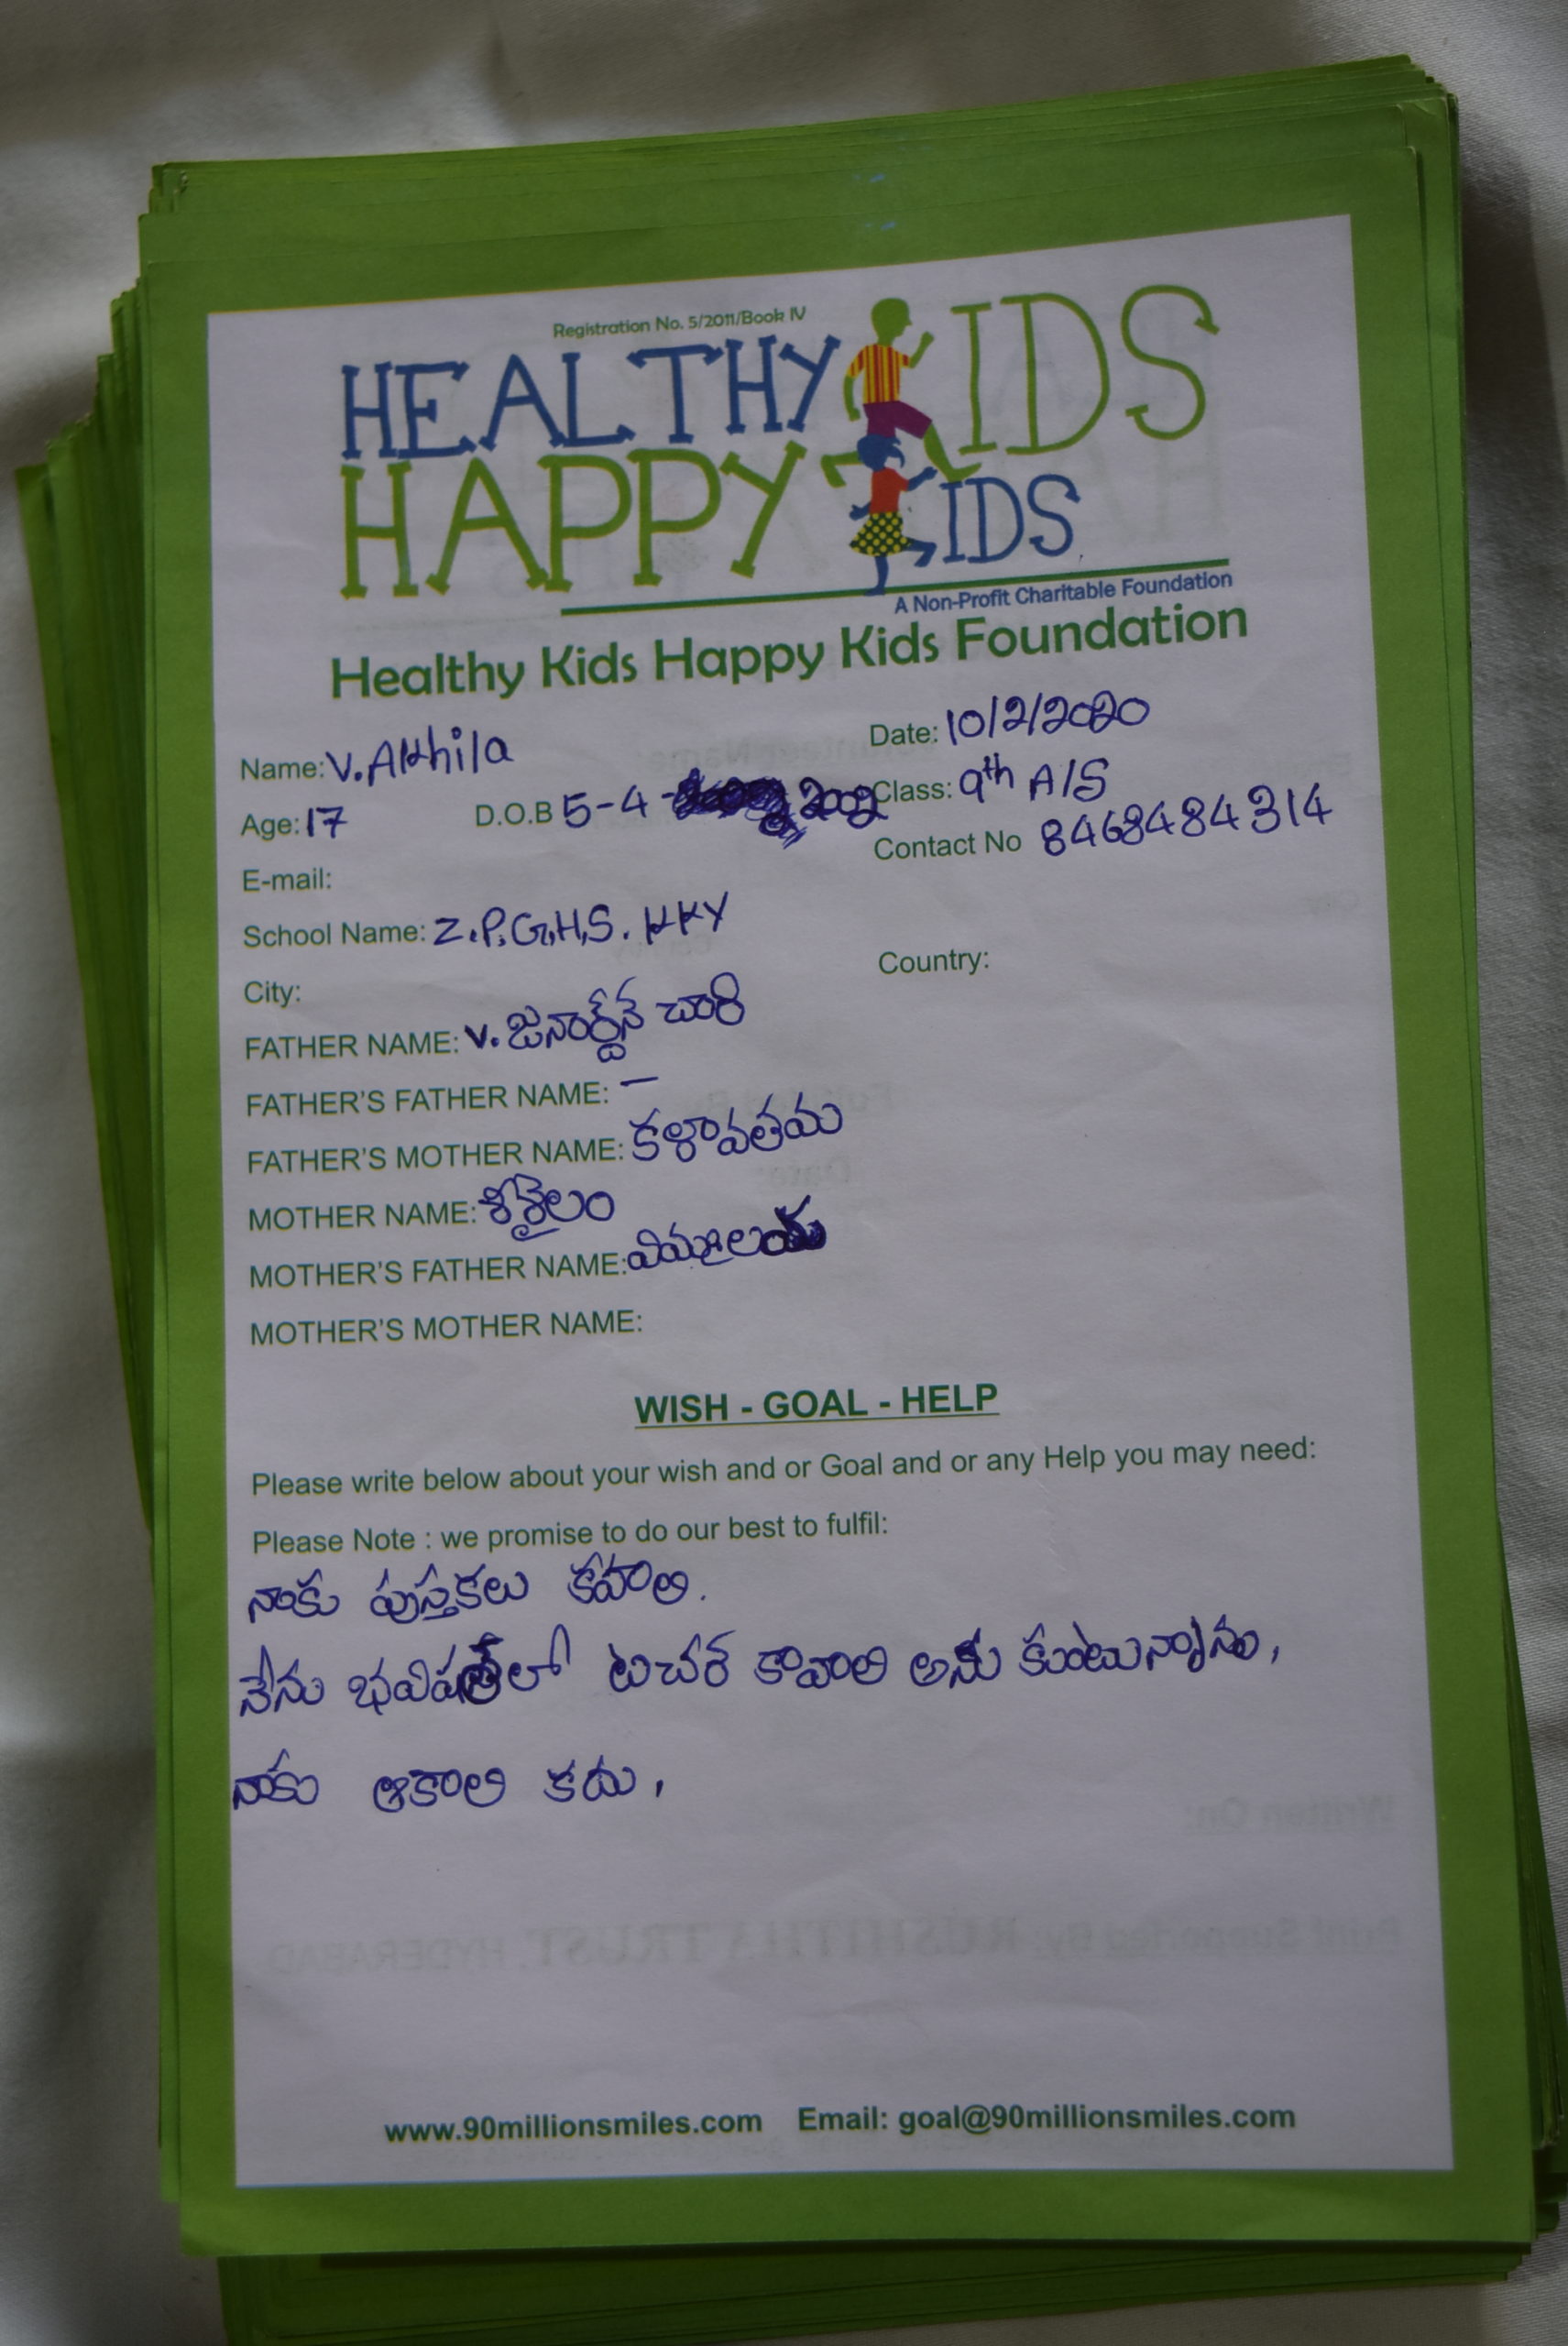 Registration No. 5/2011/Book IV
HEALTHY KIDS
HAPPY KIDS
A Non-Profit Charitable Foundation
Healthy Kids Happy Kids Foundation
Name: V. Akhila Date: 10/2/2020
Age: 17 D.O.B 5-4- 2002 Class: 9th A/S
E-mail: Contact No 8468484314
School Name: Z.P.G.H.S. KKY
City: Country:
FATHER NAME: V. జనార్ధన్ చారి
FATHER'S FATHER NAME: –
FATHER'S MOTHER NAME: కళావతమ
MOTHER NAME: శ్రీశైలం
MOTHER'S FATHER NAME:
MOTHER'S MOTHER NAME:
WISH - GOAL - HELP
Please write below about your wish and or Goal and or any Help you may need:
Please Note : we promise to do our best to fulfil:
నాకు పుస్తకలు కవాలి.
నేను భవిషతేలో టచర్ కావాలి అను కుంటున్నాను,
నాకు ఆకాలి కదు,
www.90millionsmiles.com Email: goal@90millionsmiles.com